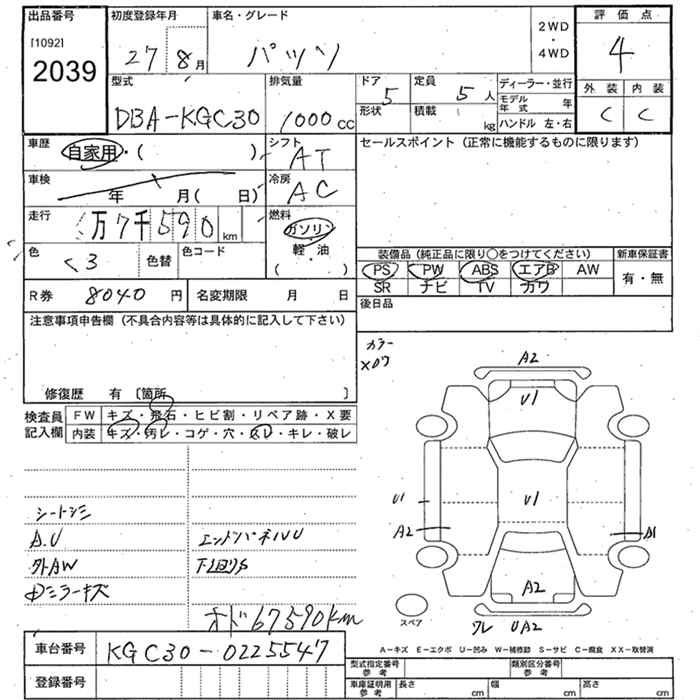 出品番号
[1092]
2039
初度登録年月
27 8月
車名・グレード
パッソ
2WD
・
4WD
評価点
4
外装 内装
C C
型式
DBA-KGC30
排気量
1000cc
ドア
5
形状
定員
5人
積載
kg
ディーラー・並行
モデル年式 年
ハンドル 左・右
車歴
自家用・( )
シフト
AT
セールスポイント(正常に機能するものに限ります)
車検
年 月( 日)
冷房
AC
走行
万7千590km
燃料
ガソリン
軽・油
( )
色
クロ
色替
色コード
装備品(純正品に限り○をつけてください)
新車保証書
PS PW ABS エアB AW
SR ナビ TV カワ
有・無
R券 8040円
名変期限 月 日
後日品
注意事項申告欄(不具合内容等は具体的に記入して下さい)
修復歴 有〔箇所 〕
検査員記入欄
FW キズ・飛石・ヒビ割・リペア跡・X要
内装 キズ・汚レ・コゲ・穴・スレ・キレ・破レ
カラー
A2
U1
U1 U1
A2 A1
A2
シートシミ
A.U
エンドパネルUU
外AW
下回りS
ミラーキズ
オド67590km
スペア
ワレ UA2
A−キズ E−エクボ U−凹み W−補修跡 S−サビ C−腐食 XX−取替済
車台番号
KGC30-0225547
登録番号
型式指定番号参考
類別区分番号参考
車庫証明用参考
長さ cm 幅 cm 高さ cm